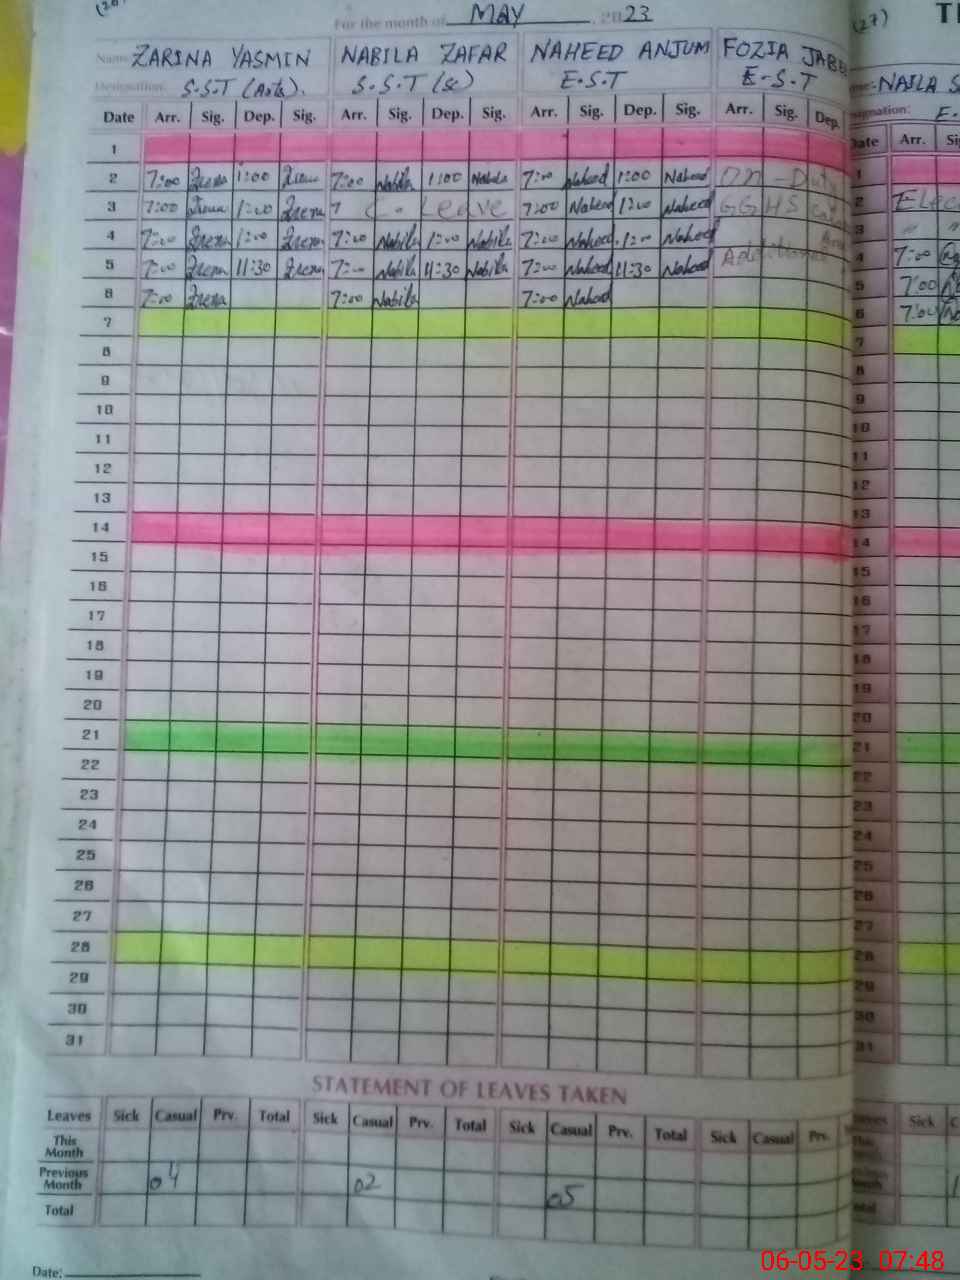 For the month of MAY 2023
(27)
Name: ZARINA YASMIN NABILA ZAFAR NAHEED ANJUM FOZIA JABE
Designation: S.S.T (Arts). S.S.T (Sc) E.S.T E-S.T
NAILA S
Designation: E.
Date Arr. Sig. Dep. Sig. Arr. Sig. Dep. Sig. Arr. Sig. Dep. Sig. Arr. Sig. Dep.
Date Arr. Sig
1
2 7:00 1:00 7:00 Nabila 1:00 Nabila 7:00 Naheed 1:00 Naheed On-Duty
3 7:00 1:00 C-Leave 7:00 Naheed 1:00 Naheed GGHS
4 7:00 1:00 7:00 Nabila 1:00 Nabila 7:00 Naheed 1:00 Naheed
5 7:00 11:30 7:00 Nabila 11:30 Nabila 7:00 Naheed 11:30 Naheed Additional
6 7:00 7:00 Nabila 7:00 Naheed
7
8
9
10
11
12
13
14
15
16
17
18
19
20
21
22
23
24
25
26
27
28
29
30
31
1
2 Elec
3 " "
4 7:00
5 7:00
6 7:00
7
8
9
10
11
12
13
14
15
16
17
18
19
20
21
22
23
24
25
26
27
28
29
30
31
STATEMENT OF LEAVES TAKEN
Leaves Sick Casual Prv. Total Sick Casual Prv. Total Sick Casual Prv. Total Sick Casual Prv.
Sick
This Month
Previous Month 04 02 05
Total
Date:
06-05-23 07:48